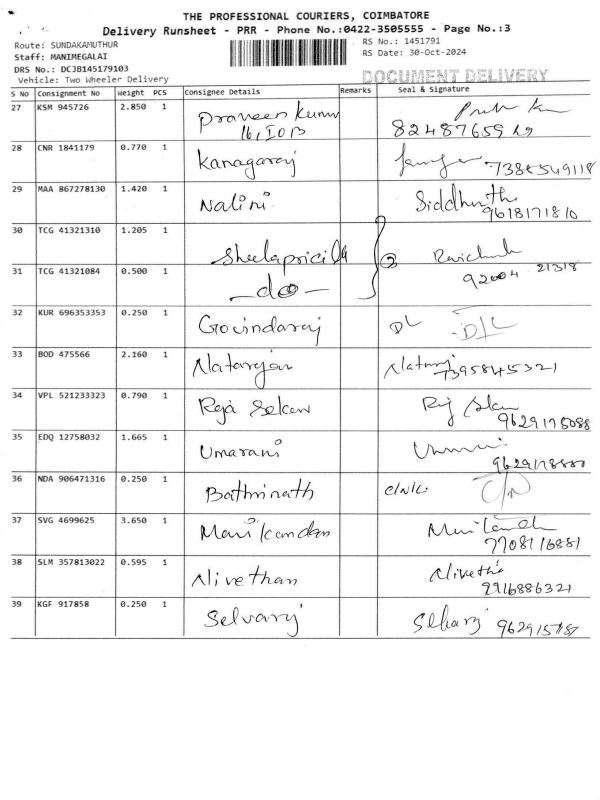 THE PROFESSIONAL COURIERS, COIMBATORE
Delivery Runsheet - PRR - Phone No.:0422-3505555 - Page No.:3
Route: SUNDAKAMUTHUR RS No.: 1451791
Staff: MANIMEGALAI RS Date: 30-Oct-2024
DRS No.: DCJB145179103
Vehicle: Two Wheeler Delivery DOCUMENT DELIVERY
S No Consignment No Weight PCS Consignee Details Remarks Seal & Signature
27 KSM 945726 2.850 1 Praveen Kumar
28 CNR 1841179 0.770 1 Kanagaraj 7385549118
29 MAA 867278130 1.420 1 Nalini Siddhunth
9618171810
30 TCG 41321310 1.205 1 Sheelapricilla 2
31 TCG 41321084 0.500 1 -do- 92004 21318
32 KUR 696353353 0.250 1 Govindaraj DL D/L
33 BOD 475566 2.160 1 Natarajan Nataraj
7395845321
34 VPL 521233323 0.790 1 Raja Sekar
9629175088
35 EDQ 12758032 1.665 1 Umarani
36 NDA 906471316 0.250 1 Bathrinath
37 SVG 4699625 3.650 1 Manikandan
7708116881
38 SLM 357813022 0.595 1 Nivethan Nivetha
9916886321
39 KGF 917858 0.250 1 Selvaraj Selvaraj